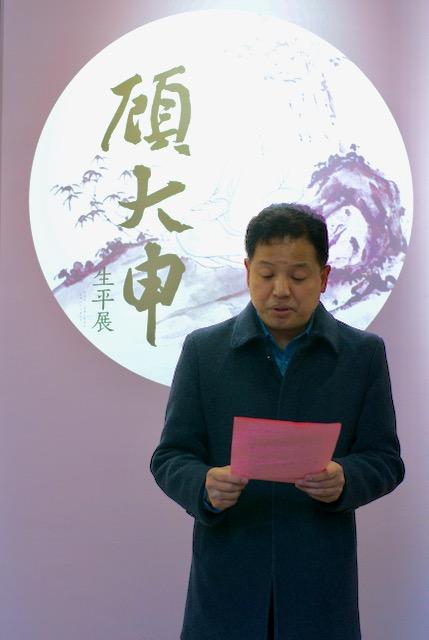 顾大申
生平展